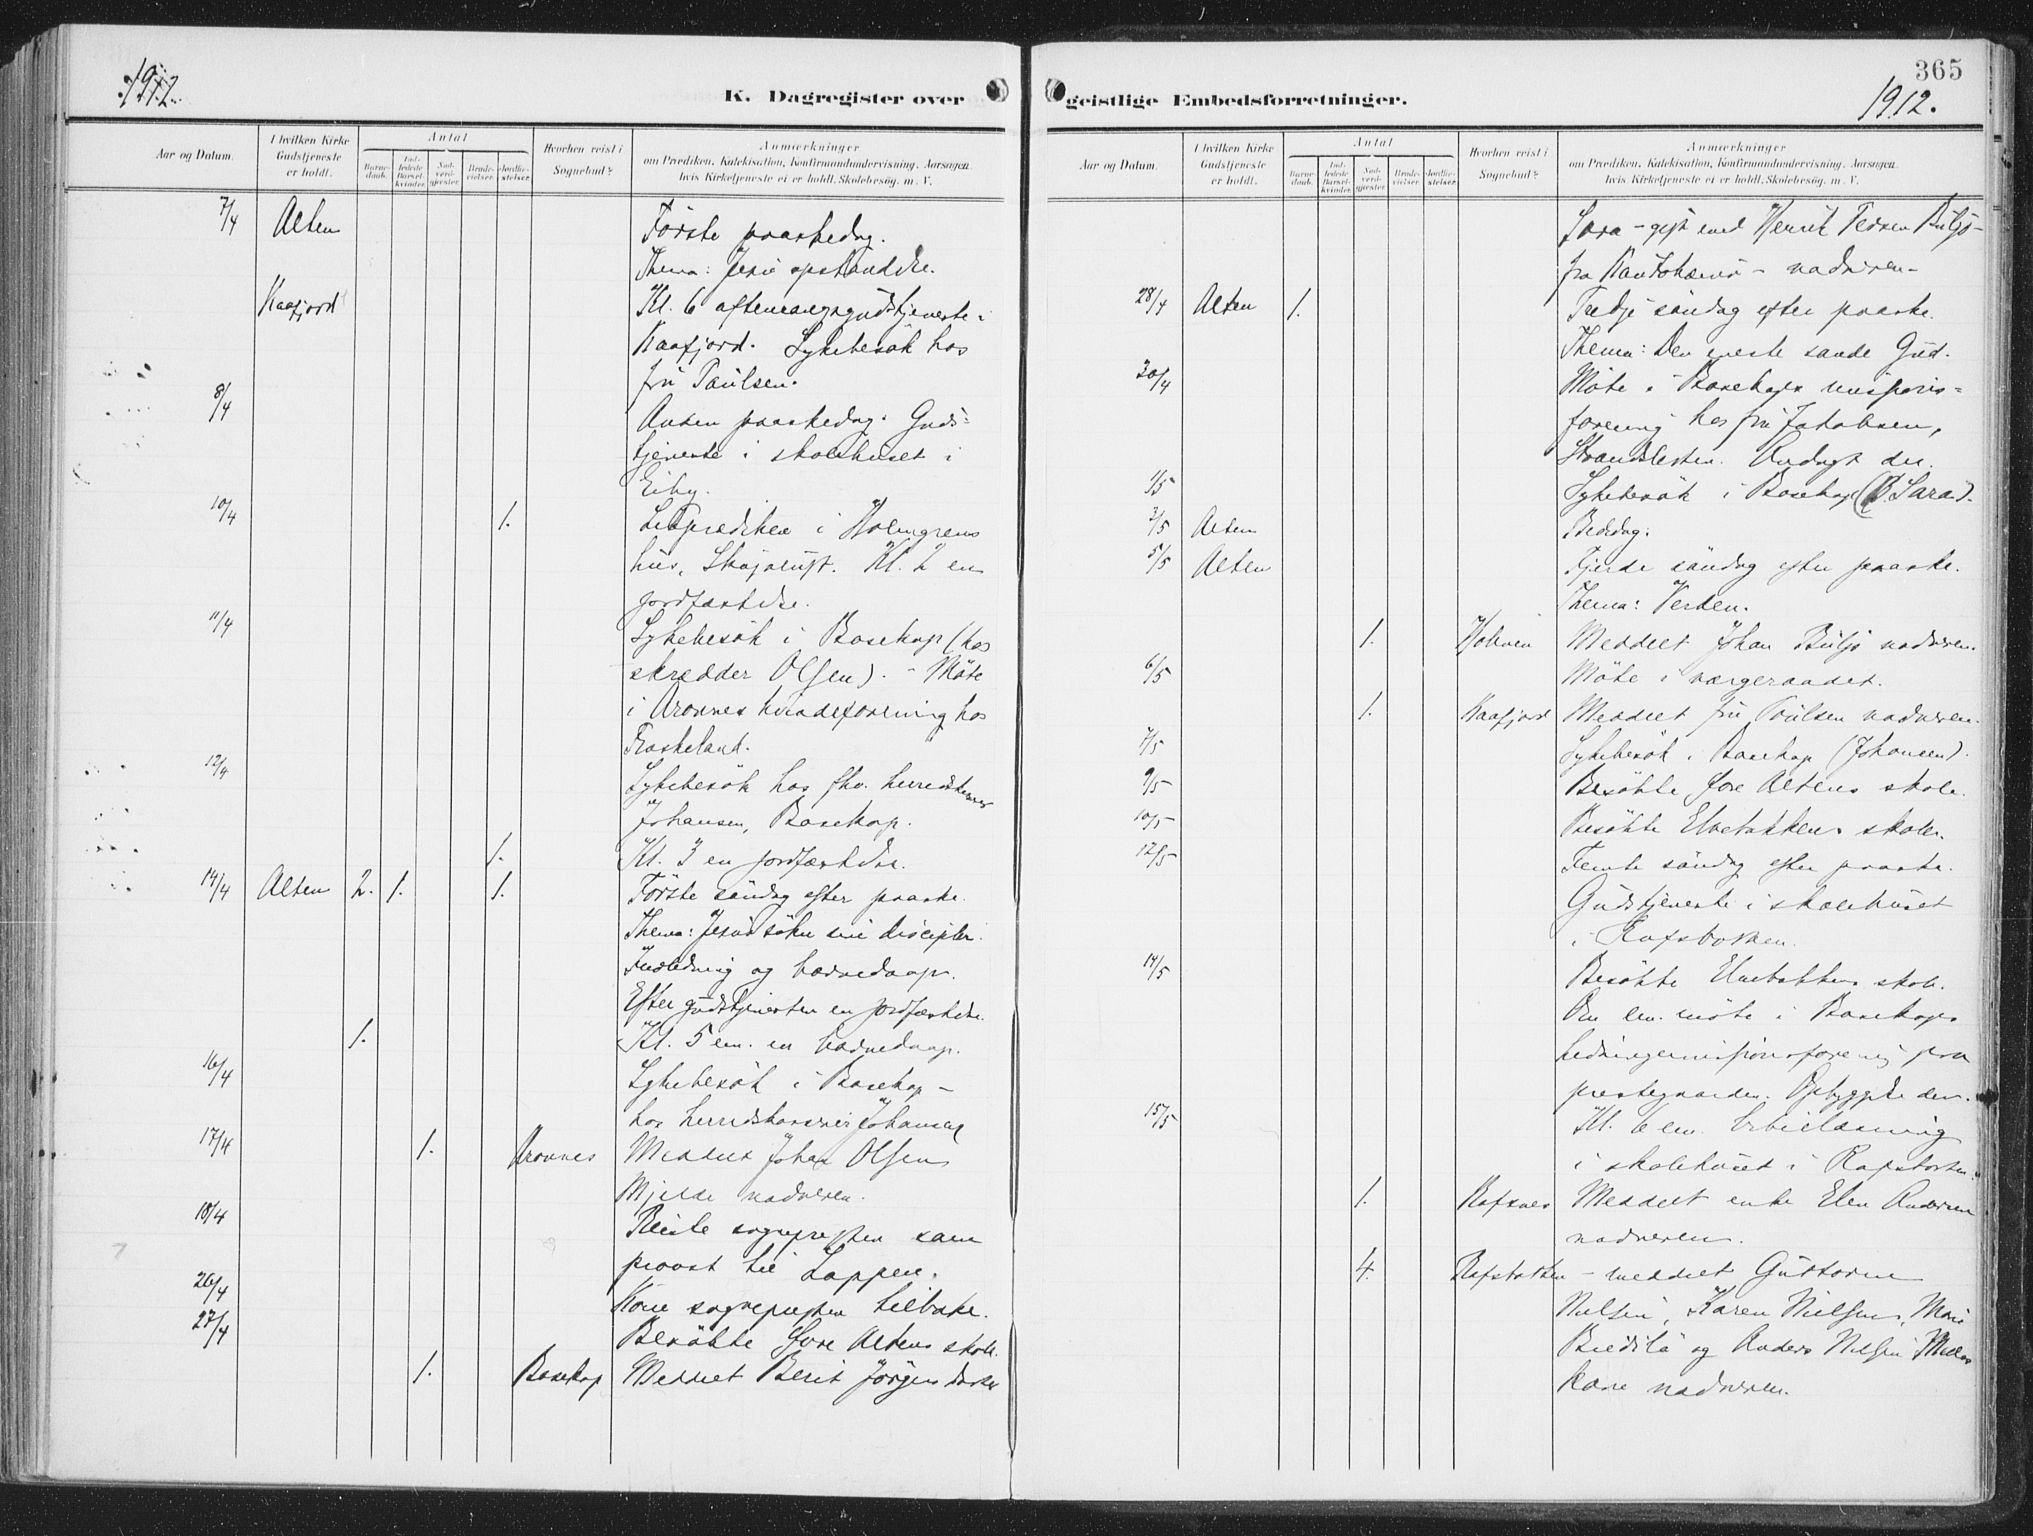 1912.
K. Dagregister over
Aar og Datum.
I hvilken Kirke Gudstjeneste er holdt.
Antal
Barnedaab.
Indledede Barselkvinder.
Nadverdgjester.
Brudevielser.
Jordfæstelser.
Hvorhen reist i Sognebud?
Anmærkninger
om Prædiken, Katekisation, Konfirmandundervisning, Aarsagen,
hvis Kirketjeneste ei er holdt, Skolebesøg, m. V.
7/4 Alten Første paaskedag.
Thema: Jesu opstandelse.
Kaafjord Kl. 6 aftensangsgudstjeneste i
Kaafjord. Sykebesök hos
fru Paulsen.
8/4 Anden paaskedag. Guds-
tjeneste i skolehuset i
Eiby.
10/4 1. Ligprediken i Holmgrens
hus, Skojaluft. Kl. 2 en
jordfæstelse.
11/4 Sykebesök i Bosekop (hos
skredder Olsen). - Möte
i Aronnes kvindeforening hos
Fraskeland.
12/4 Sykebesök hos fhv. herredskasserer
Johansen, Bosekop.
1. Kl. 3 en jordfæstelse.
14/4 Alten 2. 1. 1. Første söndag efter paaske.
Thema: Jesus söker sine disciple.
Indledning og barnedaap.
Efter gudstjenesten en jordfæstelse.
1. Kl. 5 em. en barnedaap.
16/4 Sykebesök i Bosekop -
hos herredskasserer Johansen
17/4 1. Aronnes Meddelt Johan Olsen
Mjelde nadveren.
18/4 Reiste sognepresten som
provst til Loppen.
26/4 Kom sognepresten tilbake.
27/4 Besökte Övre Altens skole.
1. Bosekop Meddelt Berit Jörgensdatter
365
1912.
geistlige Embedsforretninger.
Aar og Datum.
I hvilken Kirke Gudstjeneste er holdt.
Antal
Barnedaab.
Indledede Barselkvinder.
Nadverdgjester.
Brudevielser.
Jordfæstelser.
Hvorhen reist i Sognebud?
Anmærkninger
om Prædiken, Katekisation, Konfirmandundervisning, Aarsagen,
hvis Kirketjeneste ei er holdt, Skolebesøg, m. V.
Sara - gift med Henrik Persen Buljo -
fra Kautokeino - nadveren -
28/4 Alten 1. Tredje söndag efter paaske.
Thema: Den eneste sande Gud.
30/4 Möte i Bosekops misjons-
forening hos fru Jakobsen,
Strandslesten. Andagt der.
1/5 Sykebesök i Bosekop (B. Sara).
3/5 Alten Bededag.
5/5 Alten Fjerde söndag efter paaske.
Thema: Verden.
1. Meddelt Johan Buljo nadveren.
6/5 Möte i værgeraadet.
1. Kaafjord Meddelt fru Paulsen nadveren.
7/5 Sykebesök i Bosekop (Johansen).
9/5 Besökte Övre Altens skole.
10/5 Besökte Elvebakkens skole.
12/5 Femte söndag efter paaske.
Gudstjeneste i skolehuset
i Rafsbotten.
14/5 Besökte Elvebakkens skole.
Om em. möte i Bosekops
hedningemisjonsforening paa
prestegaarden. Opbyggelse der.
15/5 Kl. 6 em. bibellæsning
i skolehuset i Rafsbotten.
1. Rafsnes Meddelt enke Elen Andersen
nadveren.
4. Rafsbotten - meddelt Guttorm
Nielsen, Karen Nielsen, Marie
og Anders Nielsen
nadveren.